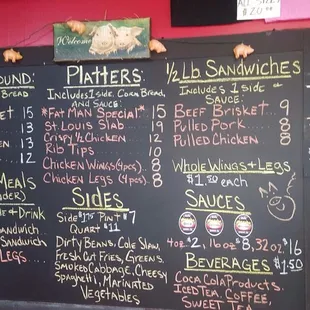 ALL SIZE
$20.00
Welcome
OUND:
BREAD
ET 15
13
N 13
12
MEALS
DER)
DE & DRINK
SANDWICH
SANDWICH
LEGS....
PLATTERS:
INCLUDES 1 SIDE, CORN BREAD,
AND SAUCE:
*FAT MAN SPECIAL* 15
ST LOUIS SLAB 19
CRISPY ½ CHICKEN 12
RIB TIPS 10
CHICKEN WINGS (4pcs) 8
CHICKEN LEGS (4pcs) 8
SIDES
SIDE $1.75 PINT $7
QUART $11
DIRTY BEANS, COLE SLAW,
FRESH CUT FRIES, GREENS,
SMOKED CABBAGE, CHEESY
SPAGHETTI, MARINATED
VEGETABLES
½ LB SANDWICHES
INCLUDES 1 SIDE &
SAUCE:
BEEF BRISKET 9
PULLED PORK 8
PULLED CHICKEN 8
WHOLE WINGS & LEGS
$1.50 each
SAUCES
4oz $2, 16oz $8, 32oz $16
BEVERAGES $1.50
COCA COLA PRODUCTS,
ICED TEA, COFFEE,
SWEET TEA